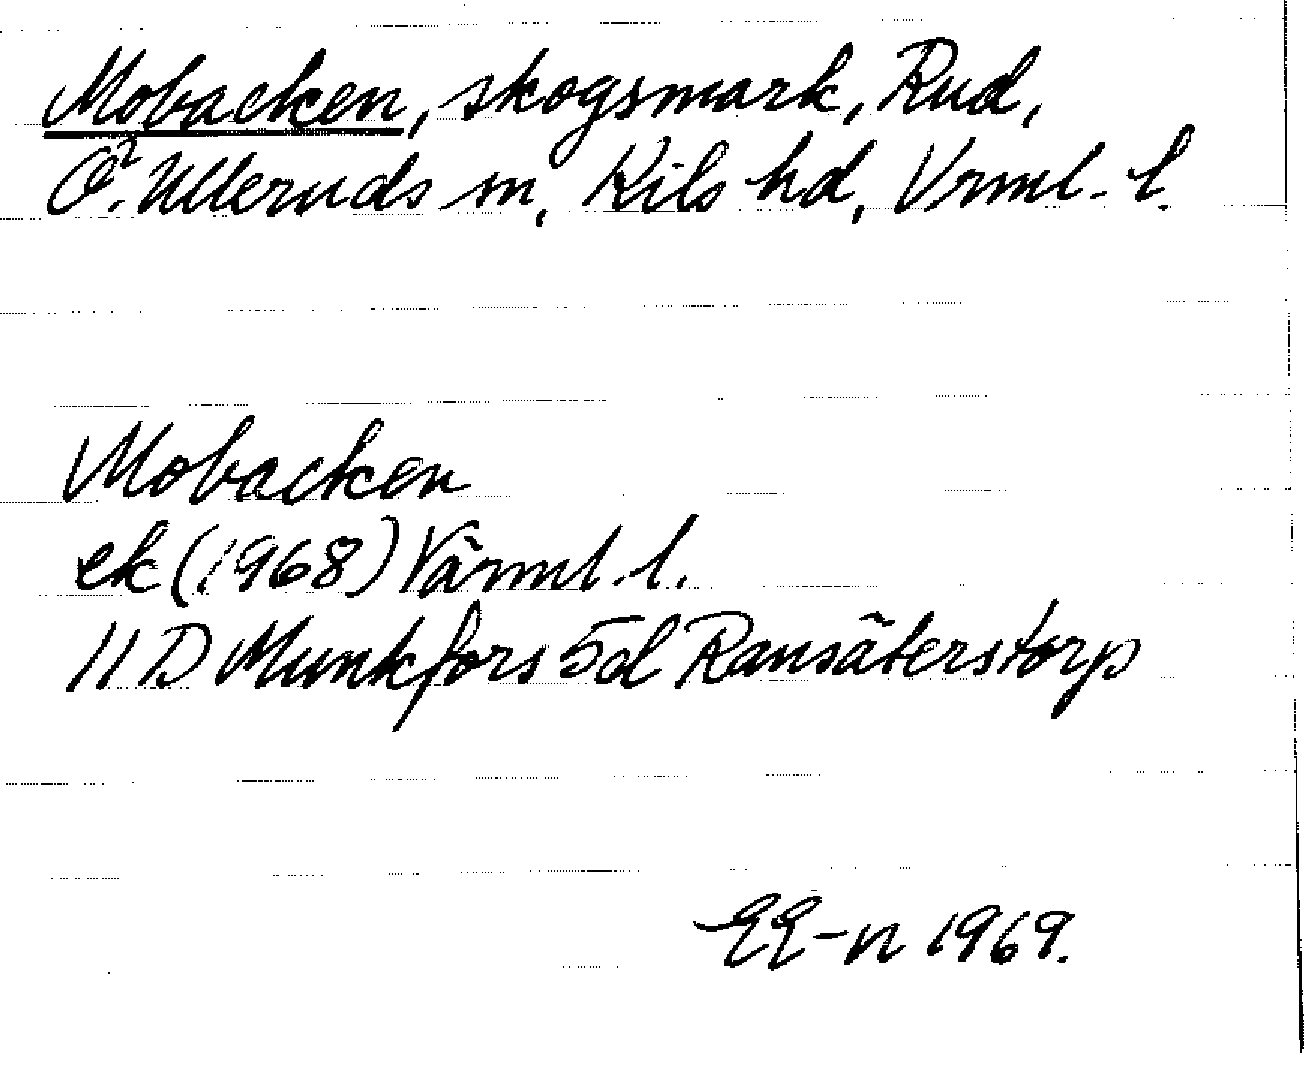 Mobacken, skogsmark, Rud,
Ö. Ulleruds sn, Kils hd, Vrml. l.
Mobacken
ek (1968) Värml. l.
11 D Munkfors 5d Ransäterstorp
EE-n 1969.